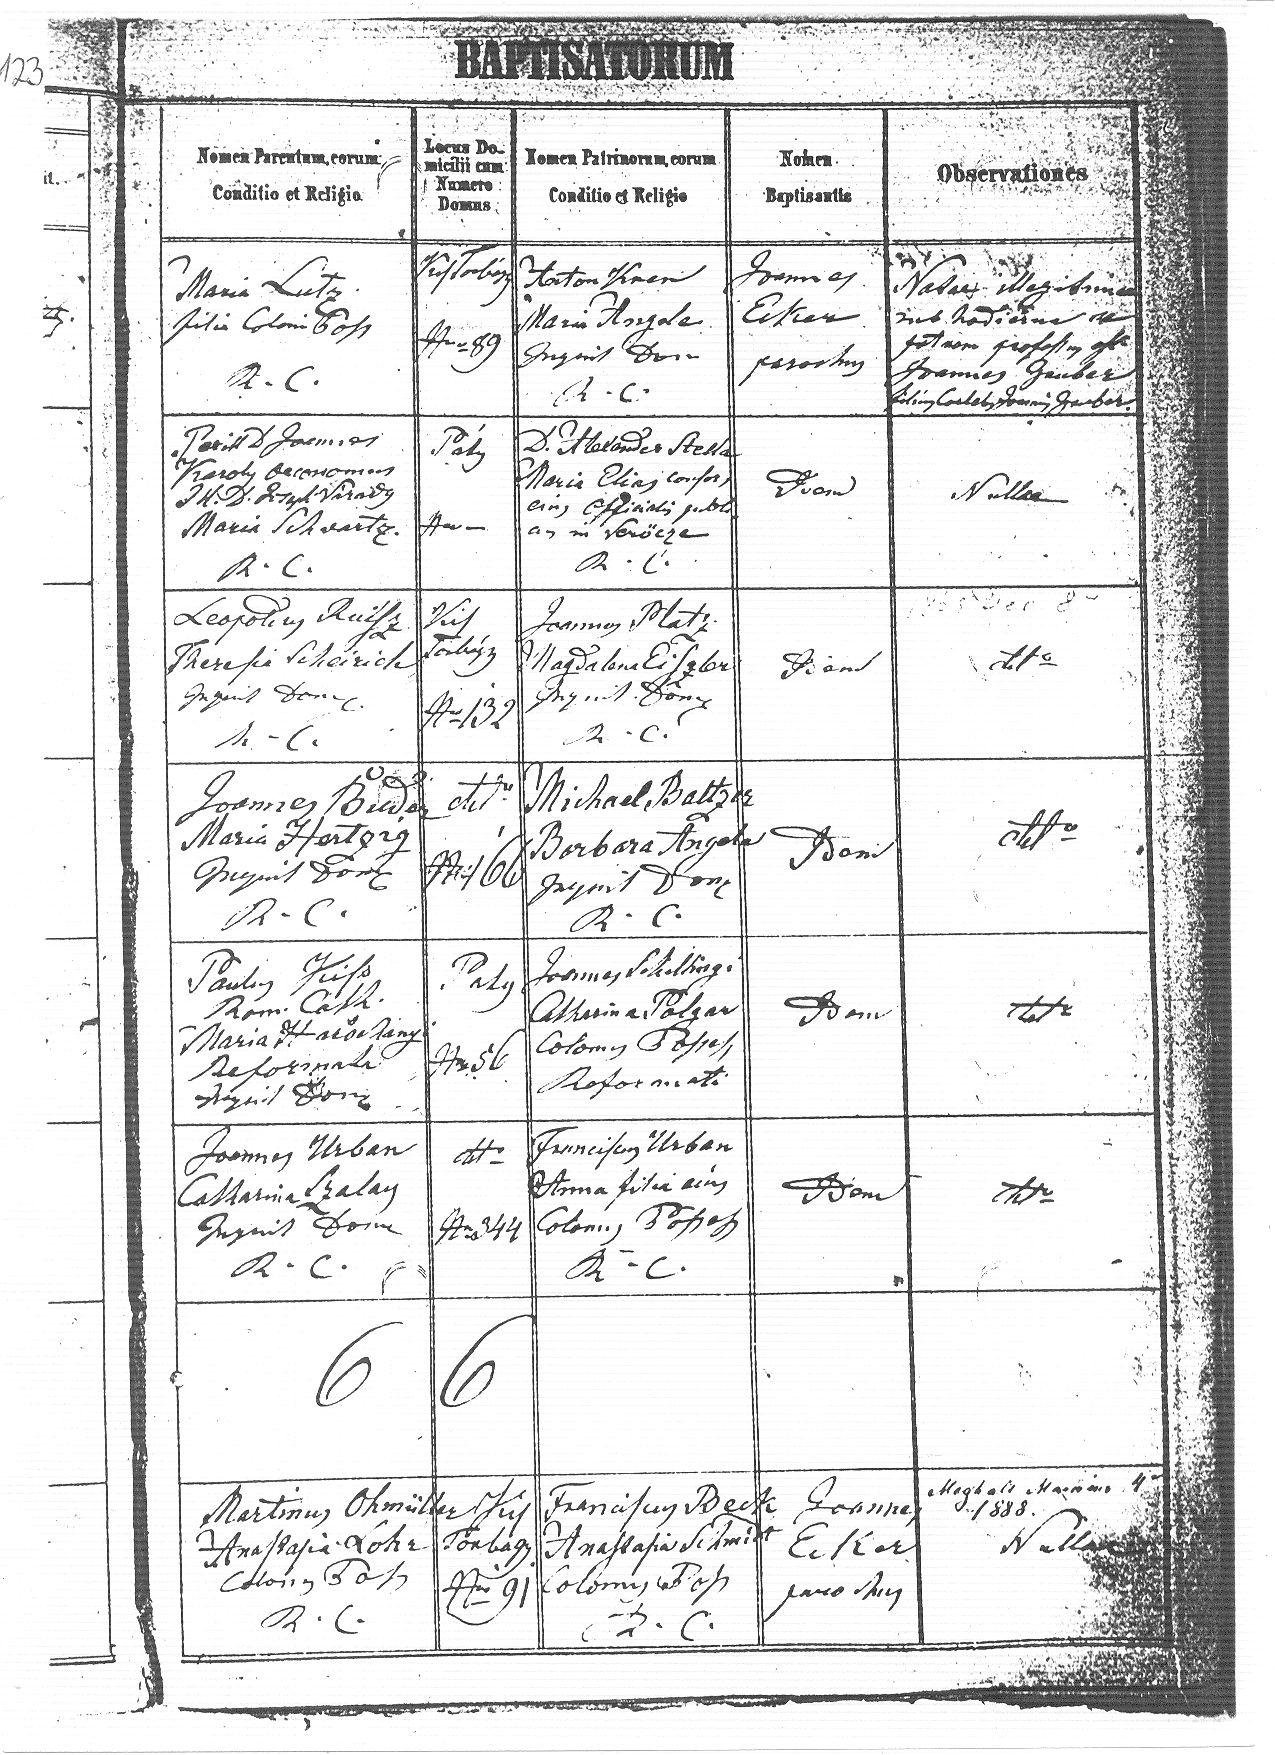 123
BAPTISATORUM
Nomen Parentum, eorum
Conditio et Religio
Locus Do-
micilii cum
Numero
Domus
Nomen Patrinorum, eorum
Conditio et Religio
Nomen
Baptisantis
Observationes
Maria Lutz
filia Coloni Poss
R. C.
Kis Torbágy
Nro 89
Anton
Maria Angele
Inquil Dom
R. C.
Joannes
Eiker
parochus
sub hodierna
patrem professus est
Joannes Gauber
Joannis Gauber.
Joannes
Karoly oeconomus
Maria Schvartz.
R. C.
Páty
Nro -
D. Alexander Stella
Maria Elias consors
eius officialis publi
cus in Verőcze
R. C.
Idem
Nullae
Leopoldus
Theresia Scheirich
Inquil Dom
R. C.
Kis
Torbágy
Nro 132
Joannes Platz
Magdalena Eiszler
Inquil Dom
R. C.
Idem
dtto
Joannes Bieder
Maria Hertzig
Inquil Dom
R. C.
dtto
Nro 166
Michael Baltzer
Barbara Angela
Inquil Dom
R. C.
Idem
dtto
Paulus Kiss
Rom. Cath.
Maria
Reformata
Inquil Dom
Paty
Nro 56
Joannes Schillingi
Catharina Polgar
Colonus Possess
Reformati
Idem
dtto
Joannes Urban
Catharina Szalay
Inquil Dom
R. C.
dtto
Nro 344
Franciscus Urban
Anna filia eius
Colonus Possess
R. C.
Idem
dtto
6 6
Martinus Ohmüller
Anastasia Lohr
Colonus Poss
R. C.
Kis
Torbagy
Nro 91
Franciscus Beck
Anastasia Schmidt
Colonus Poss
R. C.
Joannes
Eiker
parochus
Meghalt 4
1888.
Nullae